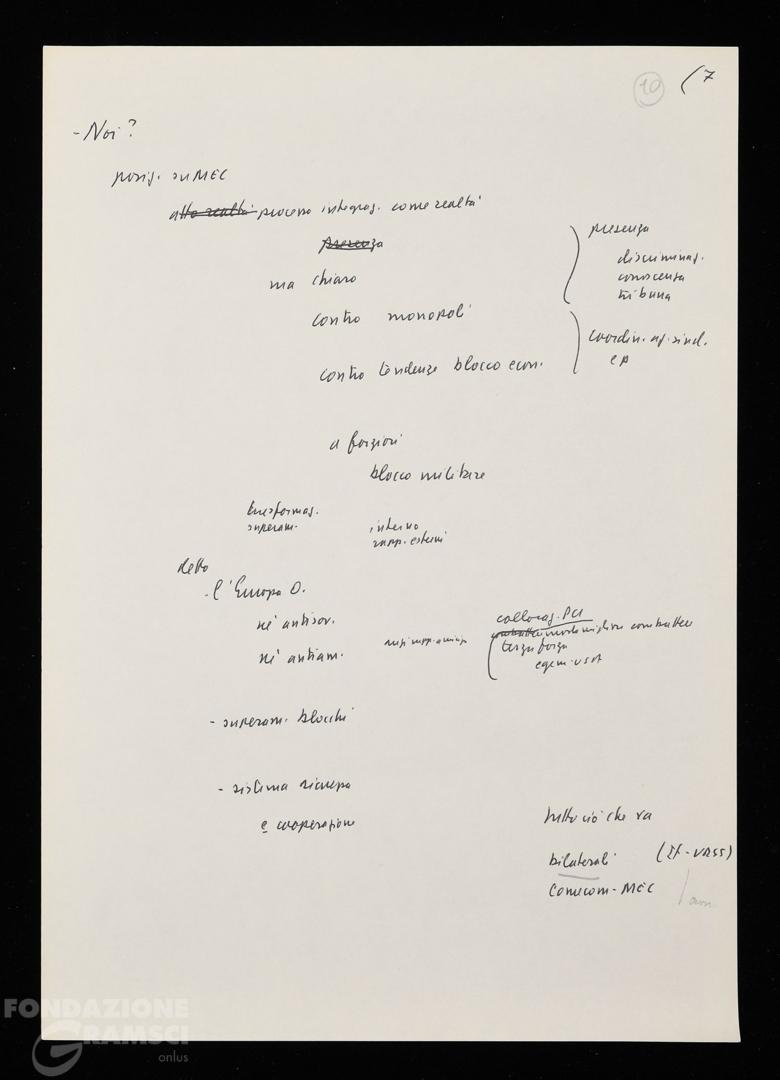 10 (7
- Noi?
posiz. su MEC
atto realtà processo integraz. come realtà
presenza
ma chiaro
contro monopoli
contro tendenze blocco econ.
presenza
discriminaz.
conoscenza
tribuna
coordin. az. sind.
e p
a forziori
blocco militare
trasformaz.
superam.
interno
rapp. esterni
detto
- l'Europa O.
né antisov.
né antiam.
collocaz. PCI
combattere modo migliore combattere
terza forza
egem. USA
- superam. blocchi
- sistema sicurezza
e cooperazione
tutto ciò che va
bilaterali (It - URSS)
Comecon - MEC
FONDAZIONE
GRAMSCI
onlus